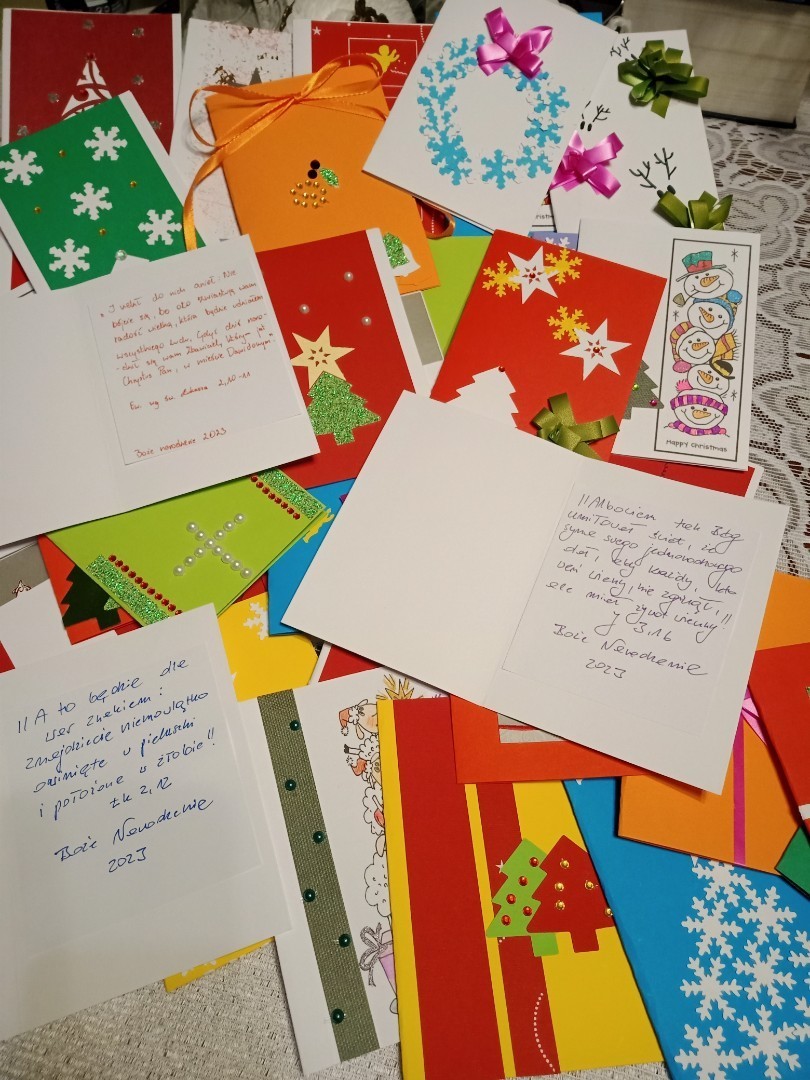 „I rzekł do nich anioł: Nie
bójcie się, bo oto zwiastuję wam
radość wielką, która będzie udziałem
wszystkiego ludu, Gdyż dziś naro-
dził się wam Zbawiciel, którym jest
Chrystus Pan, w mieście Dawidowym"
Ew. wg św. Łukasza 2,10-11
Boże narodzenie 2023
Happy Christmas
"Albowiem tak Bóg
umiłował świat, że
syna swego jednorodzonego
dał, aby każdy, kto
weń wierzy, nie zginął,
ale miał żywot wieczny!"
J 3,16
Boże Narodzenie
2023
"A to będzie dla
was znakiem:
znajdziecie niemowlątko
owinięte w pieluszki
i położone w żłobie!"
Łk 2,12
Boże Narodzenie
2023